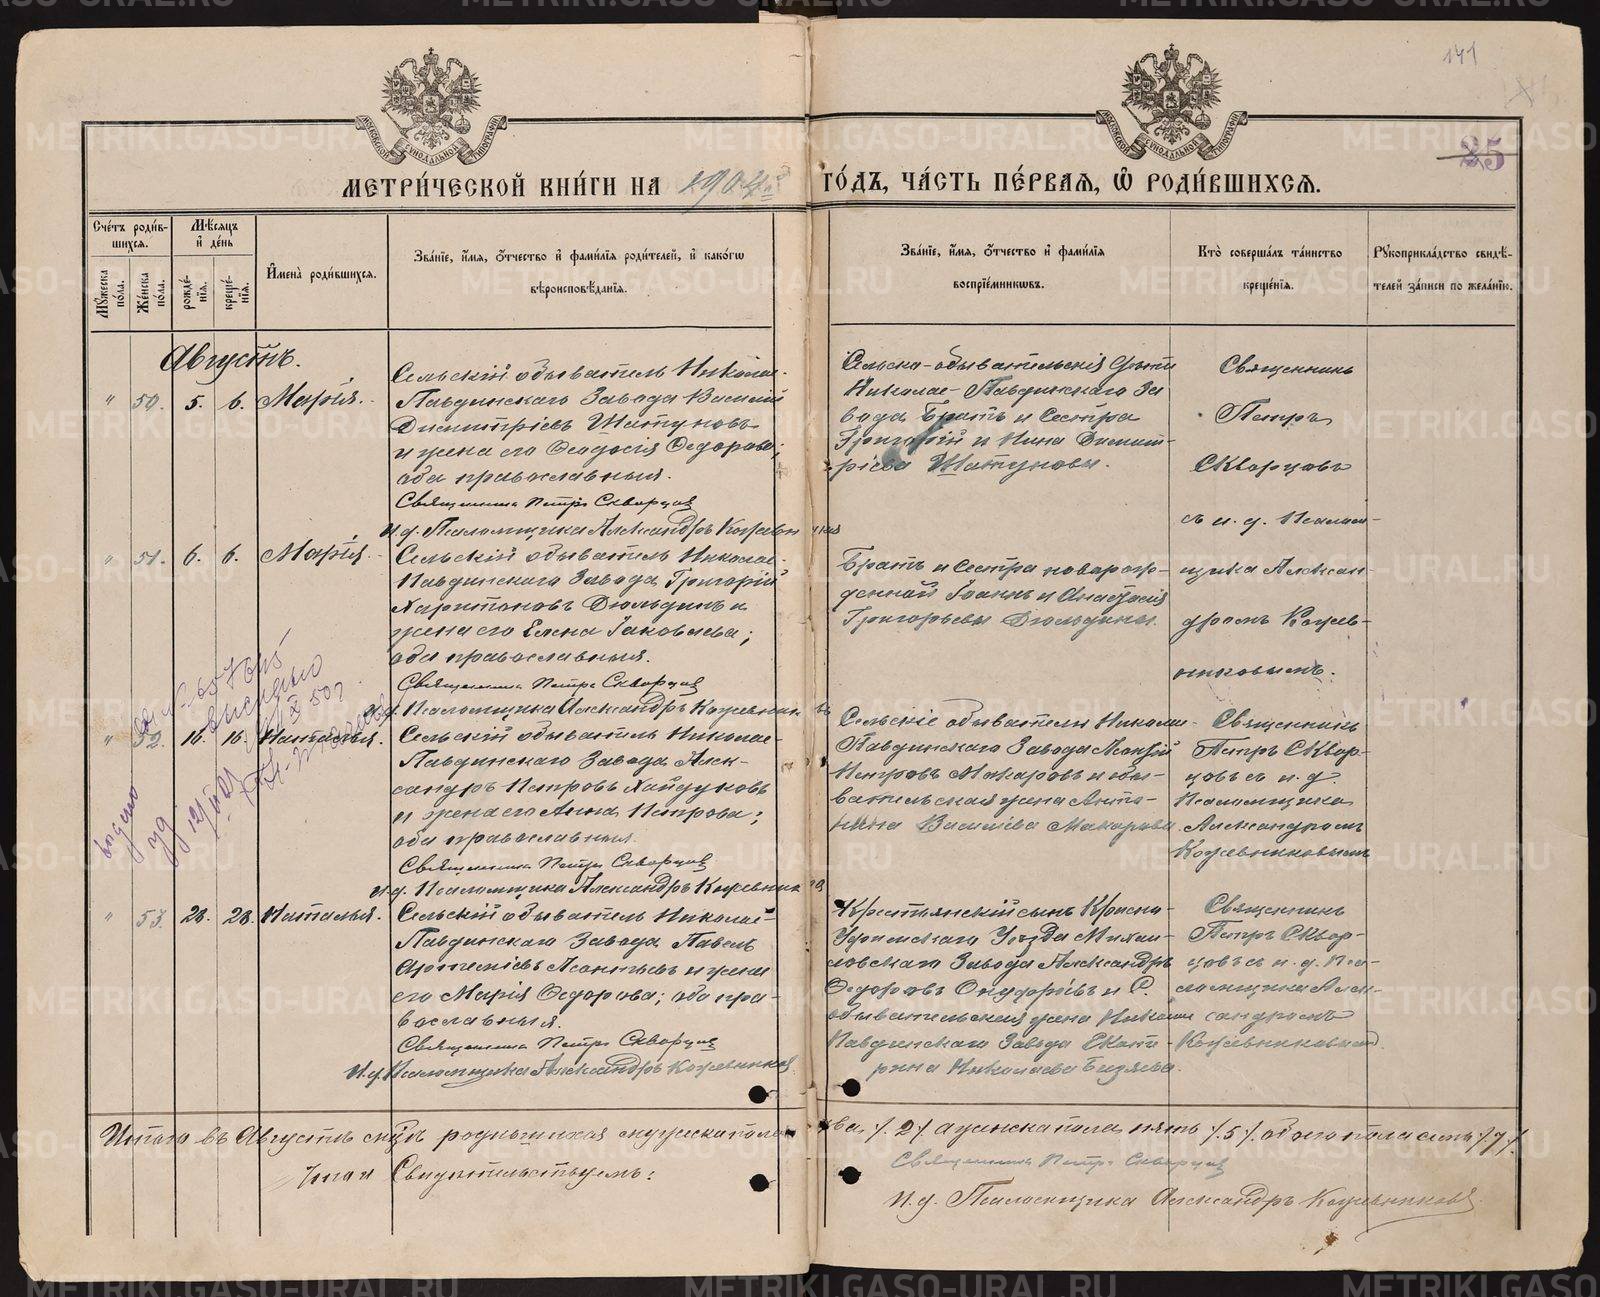 141
25
МЕТРИ́ЧЕСКОЙ КНИ́ГИ НА 1904й ГО́ДЪ, ЧА́СТЬ ПЕ́РВАЯ, Ѿ РОДИ́ВШИХСЯ.
Сче́тъ роди́вшихся.
Мѣ́сяцъ и҆ де́нь
Му́жеска по́ла.
Же́нска по́ла.
рожде́нїя.
креще́нїя.
И҆мена̀ роди́вшихся.
Зва́нїе, и҆́мя, ѻ҆́тчество и҆ фами́лїя роди́телей, и҆ како́гѡ вѣроисповѣ́данїя.
Зва́нїе, и҆́мя, ѻ҆́тчество и҆ фами́лїя воспрїе́мникѡвъ.
Кто̀ соверша́лъ та́инство креще́нїя.
Рукоприкла́дство свидѣ́телей за́писи по жела́нїю.
Августъ.
" 50. 5. 6. Марія.
Сельскій обыватель Николае-
Павдинскаго Завода Василій
Димитріевъ Шатуновъ
и жена его Ѳеодосія Ѳедорова;
оба православныя.
Священникъ Петръ Скворцовъ
И. д. Псаломщика Александръ Кожевниковъ
Сельско-обывательскія дѣти
Николае-Павдинскаго За
вода Братъ и Сестра
Григорій и Нина Димит-
ріевы Шатуновы.
Священникъ
Петръ
Скворцовъ
съ и. д. Псалом-
щика Алексан-
дромъ Кожев-
никовымъ.
" 51. 6. 6. Марія.
Сельскій обыватель Николае-
Павдинскаго Завода Григорій
Харитоновъ Дюльдинъ и
жена его Елена Іаковлева;
оба православныя.
Священникъ Петръ Скворцовъ
И. д. Псаломщика Александръ Кожевниковъ
Братъ и сестра новорож-
денной Іоаннъ и Анастасія
Григорьевы Дюльдины.
" 52. 16. 16. Наталья.
Сельскій обыватель Николае-
Павдинскаго Завода Алек-
сандръ Петровъ Хайдуковъ
и жена его Анна Петрова;
оба православныя.
Священникъ Петръ Скворцовъ
И. д. Псаломщика Александръ Кожевниковъ
Сельскіе обыватели Николае-
Павдинскаго Завода
Петровъ Макаровъ и обы-
вательская жена Анто-
нина Василіева Макарова.
Священникъ
Петръ Сквор-
цовъ съ и. д.
Псаломщика
Александромъ
Кожевниковымъ
" 53. 28. 28. Наталья.
Сельскій обыватель Николае-
Павдинскаго Завода Павелъ
Артеміевъ Леонтьевъ и жена
его Марія Ѳедорова; оба пра-
вославныя.
Священникъ Петръ Скворцовъ
И. д. Псаломщика Александръ Кожевниковъ
Крестьянскій сынъ Красно-
Уфимскаго Уѣзда Михай-
ловскаго Завода Александръ
Ѳедоровъ Онуфріевъ и С.
обывательская жена Николае
Павдинскаго Завода Екате-
рина Николаева Бызяева.
Священникъ
Петръ Сквор-
цовъ съ и. д. Пса-
ломщика Алек-
сандромъ
Кожевниковымъ.
Итого въ Августѣ родившихся мужеска пола два /.2./ а женска пола пять /.5./. обоего пола семь /.7./.
Свидѣтельствуемъ:
Священникъ Петръ Скворцовъ
И. д. Псаломщика Александръ Кожевниковъ